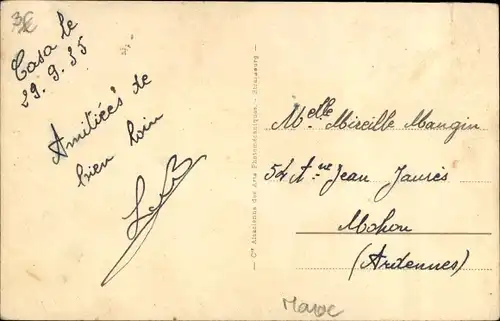 Casa le
29.9.35
Amitiées de
bien loin
Cie Alsacienne des Arts Photomécaniques - Strasbourg
Melle Mireille Mangin
54 Ave Jean Jaurès
Mohon
(Ardennes)
Maroc